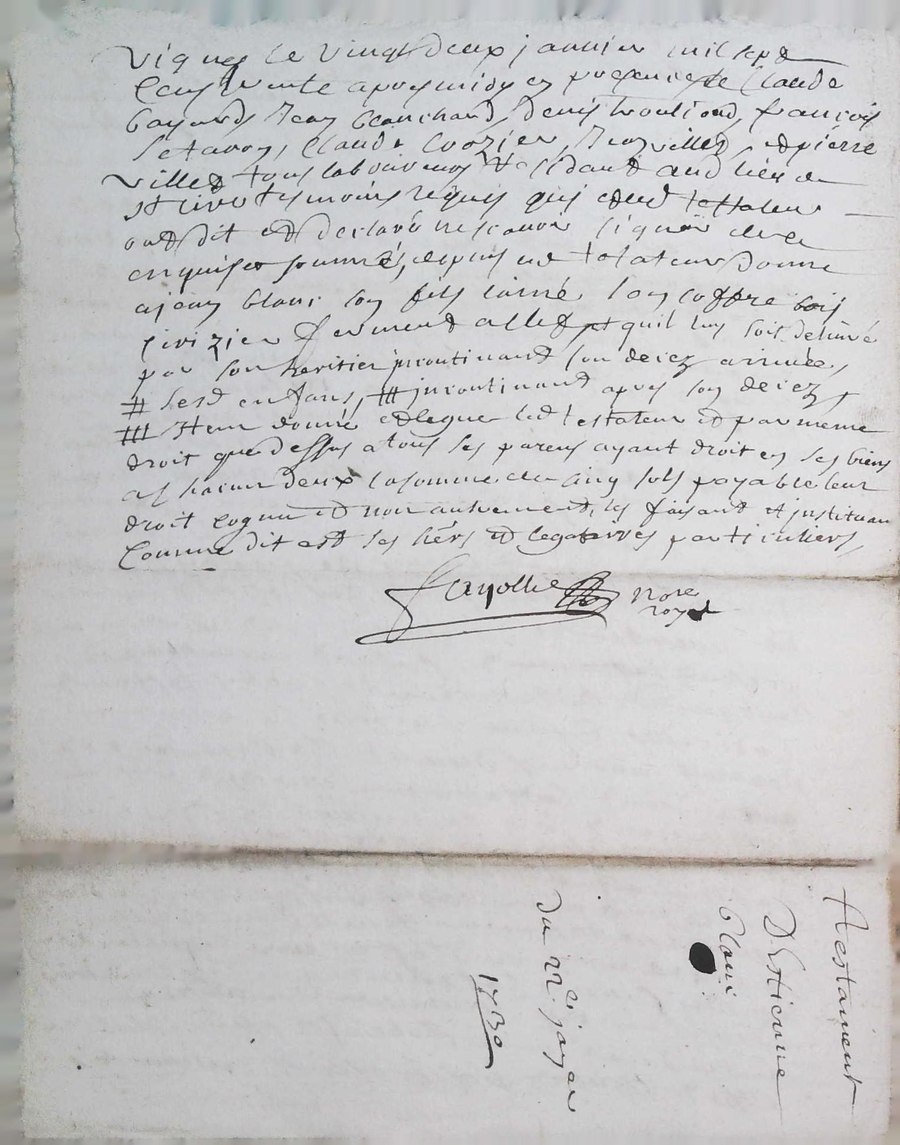 vignes le vingt deux janvier mil sept
cens trente apres midy en presence de Claude
bayard, Jean blanchard, denis trouliond, francois
Claude Crozier, Jean villed, et pierre
villed tous laboureurs residant aud lieu de
st temoins requis qui et led testateur
ont dit et declaré ne scavoir signer de ce
enquis et sommés, deplus led testateur donne
a jean blanc son fils lainé, son coffre bois
fermant a clef et quil luy soit delivré
par son heritier incontinant son decez arrivée,
# sesd enfans, ## incontinant apres son decez
### Item donne et legue led testateur et par meme
droit que dessus a tous ses parens ayant droit en ses biens
a chacun deux la somme de cinq sols payable leur
droit cognu et non autrement, les faisant et instituan
Comme dit est ses hers et legataires particuliers,
fayolle Nore
royal
Testament
D'Estienne
blanc
du 22e janvier
1730